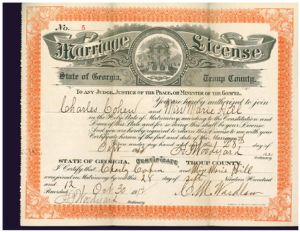 No. 5
Marriage License
State of Georgia, Troup County.
TO ANY JUDGE, JUSTICE OF THE PEACE, OR MINISTER OF THE GOSPEL.
You are hereby authorized to join
Charles Cohen and Miss Marie Hill
in the Holy State of Matrimony according to the Constitution and
Laws of this State and for so doing this shall be your License.
And you are hereby required to return this License to me with your
Certificate hereon of the fact and date of this Marriage
day of
STATE OF GEORGIA, Certificate TROUP COUNTY.
I Certify that Charley Cohen and Miss Marie Hill
were joined in Matrimony by me this 28 day of
Recorded Oct 30 191
C. M. Wardlaw